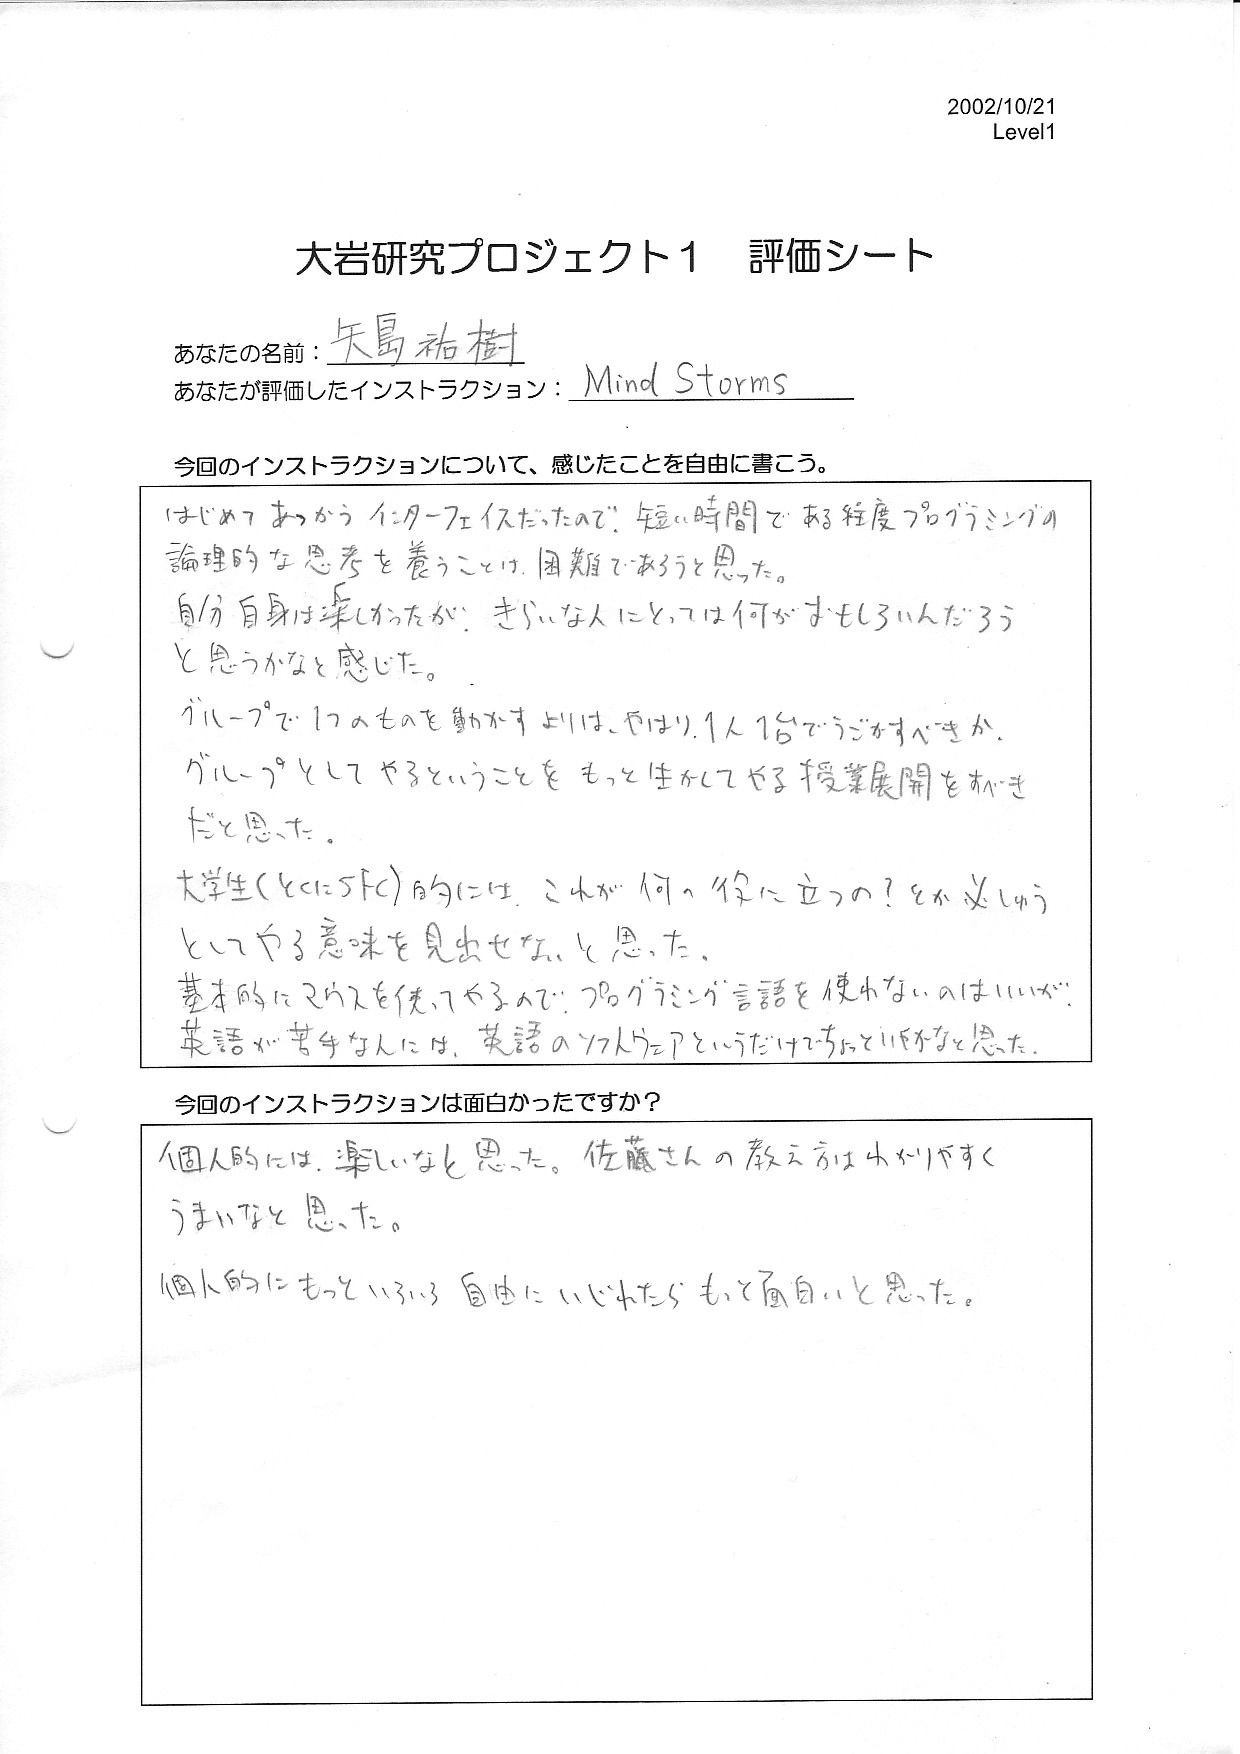 2002/10/21
Level1
大岩研究プロジェクト1　評価シート
あなたの名前：矢島祐樹
あなたが評価したインストラクション：Mind Storms
今回のインストラクションについて、感じたことを自由に書こう。
はじめてあつかうインターフェイスだったので、短い時間である程度プログラミングの
論理的な思考を養うことは、困難であろうと思った。
自分自身は楽しかったが、きらいな人にとっては何がおもしろいんだろう
と思うかなと感じた。
グループで1つのものを動かすよりは、やはり、1人1台でうごかすべきか、
グループとしてやるということをもっと生かしてやる授業展開をすべき
だと思った。
大学生(とくにSFC)的には、これが何の役に立つの?とか必しゅう
としてやる意味を見出せないと思った。
基本的にマウスを使ってやるので、プログラミング言語を使わないのはいいが、
英語が苦手な人には、英語のソフトウェアというだけでちょっといやかなと思った。
今回のインストラクションは面白かったですか？
個人的には、楽しいなと思った。佐藤さんの教え方はわかりやすく
うまいなと思った。
個人的にもっといろいろ自由にいじれたらもっと面白いと思った。